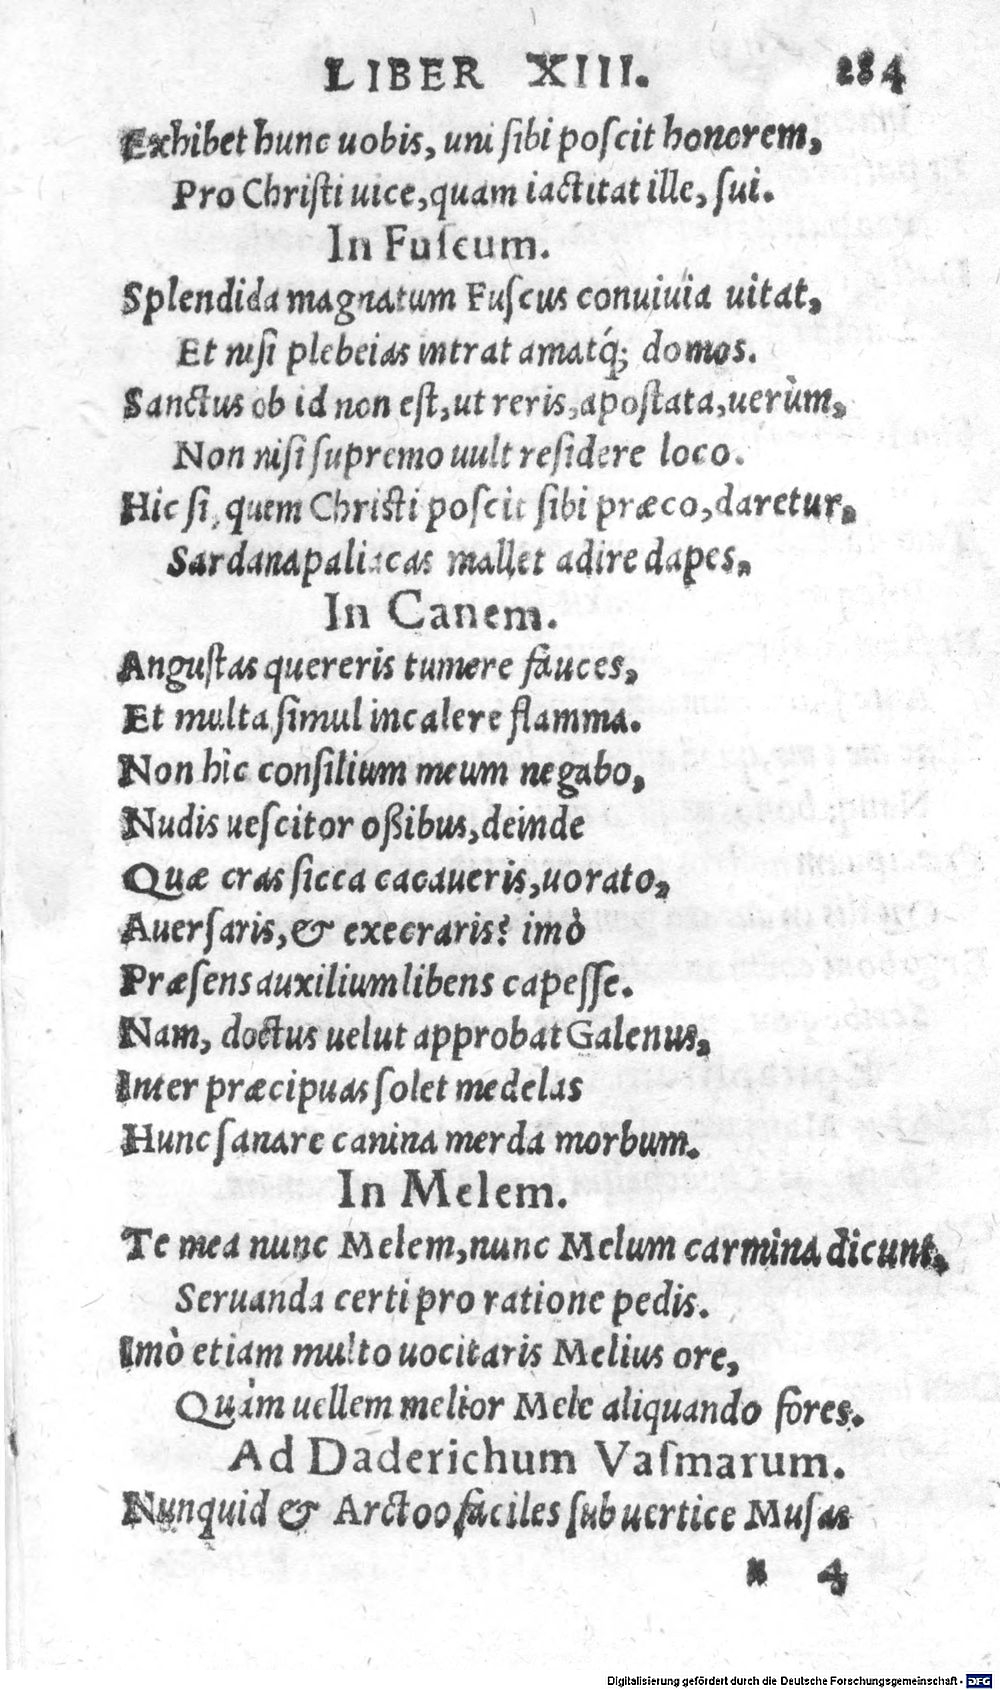 LIBER XIII. 284
Exhibet hunc uobis, uni ſibi poſcit honorem,
Pro Chriſti uice, quam iactitat ille, ſui.
In Fuſcum.
Splendida magnatum Fuſcus conuiuia uitat,
Et niſi plebeias intrat amatq́; domos.
Sanctus ob id non eſt, ut reris, apoſtata, uerùm,
Non niſi ſupremo uult reſidere loco.
Hic ſi, quem Chriſti poſcit ſibi præco, daretur,
Sardanapaliacas mallet adire dapes,
In Canem.
Anguſtas quereris tumere fauces,
Et multa ſimul incalere flamma.
Non hìc conſilium meum negabo,
Nudis ueſcitor oßibus, deinde
Quæ cras ſicca cacaueris, uorato,
Auerſaris, & execraris? imò
Præſens auxilium libens capeſſe.
Nam, doctus uelut approbat Galenus,
Inter præcipuas ſolet medelas
Hunc ſanare canina merda morbum.
In Melem.
Te mea nunc Melem, nunc Melum carmina dicunt,
Seruanda certi pro ratione pedis.
Imò etiam multo uocitaris Melius ore,
Quàm uellem melior Mele aliquando fores.
Ad Daderichum Vaſmarum.
Nunquid & Arctoo faciles ſub uertice Muſas
N 4
Digitalisierung gefördert durch die Deutsche Forschungsgemeinschaft - DFG